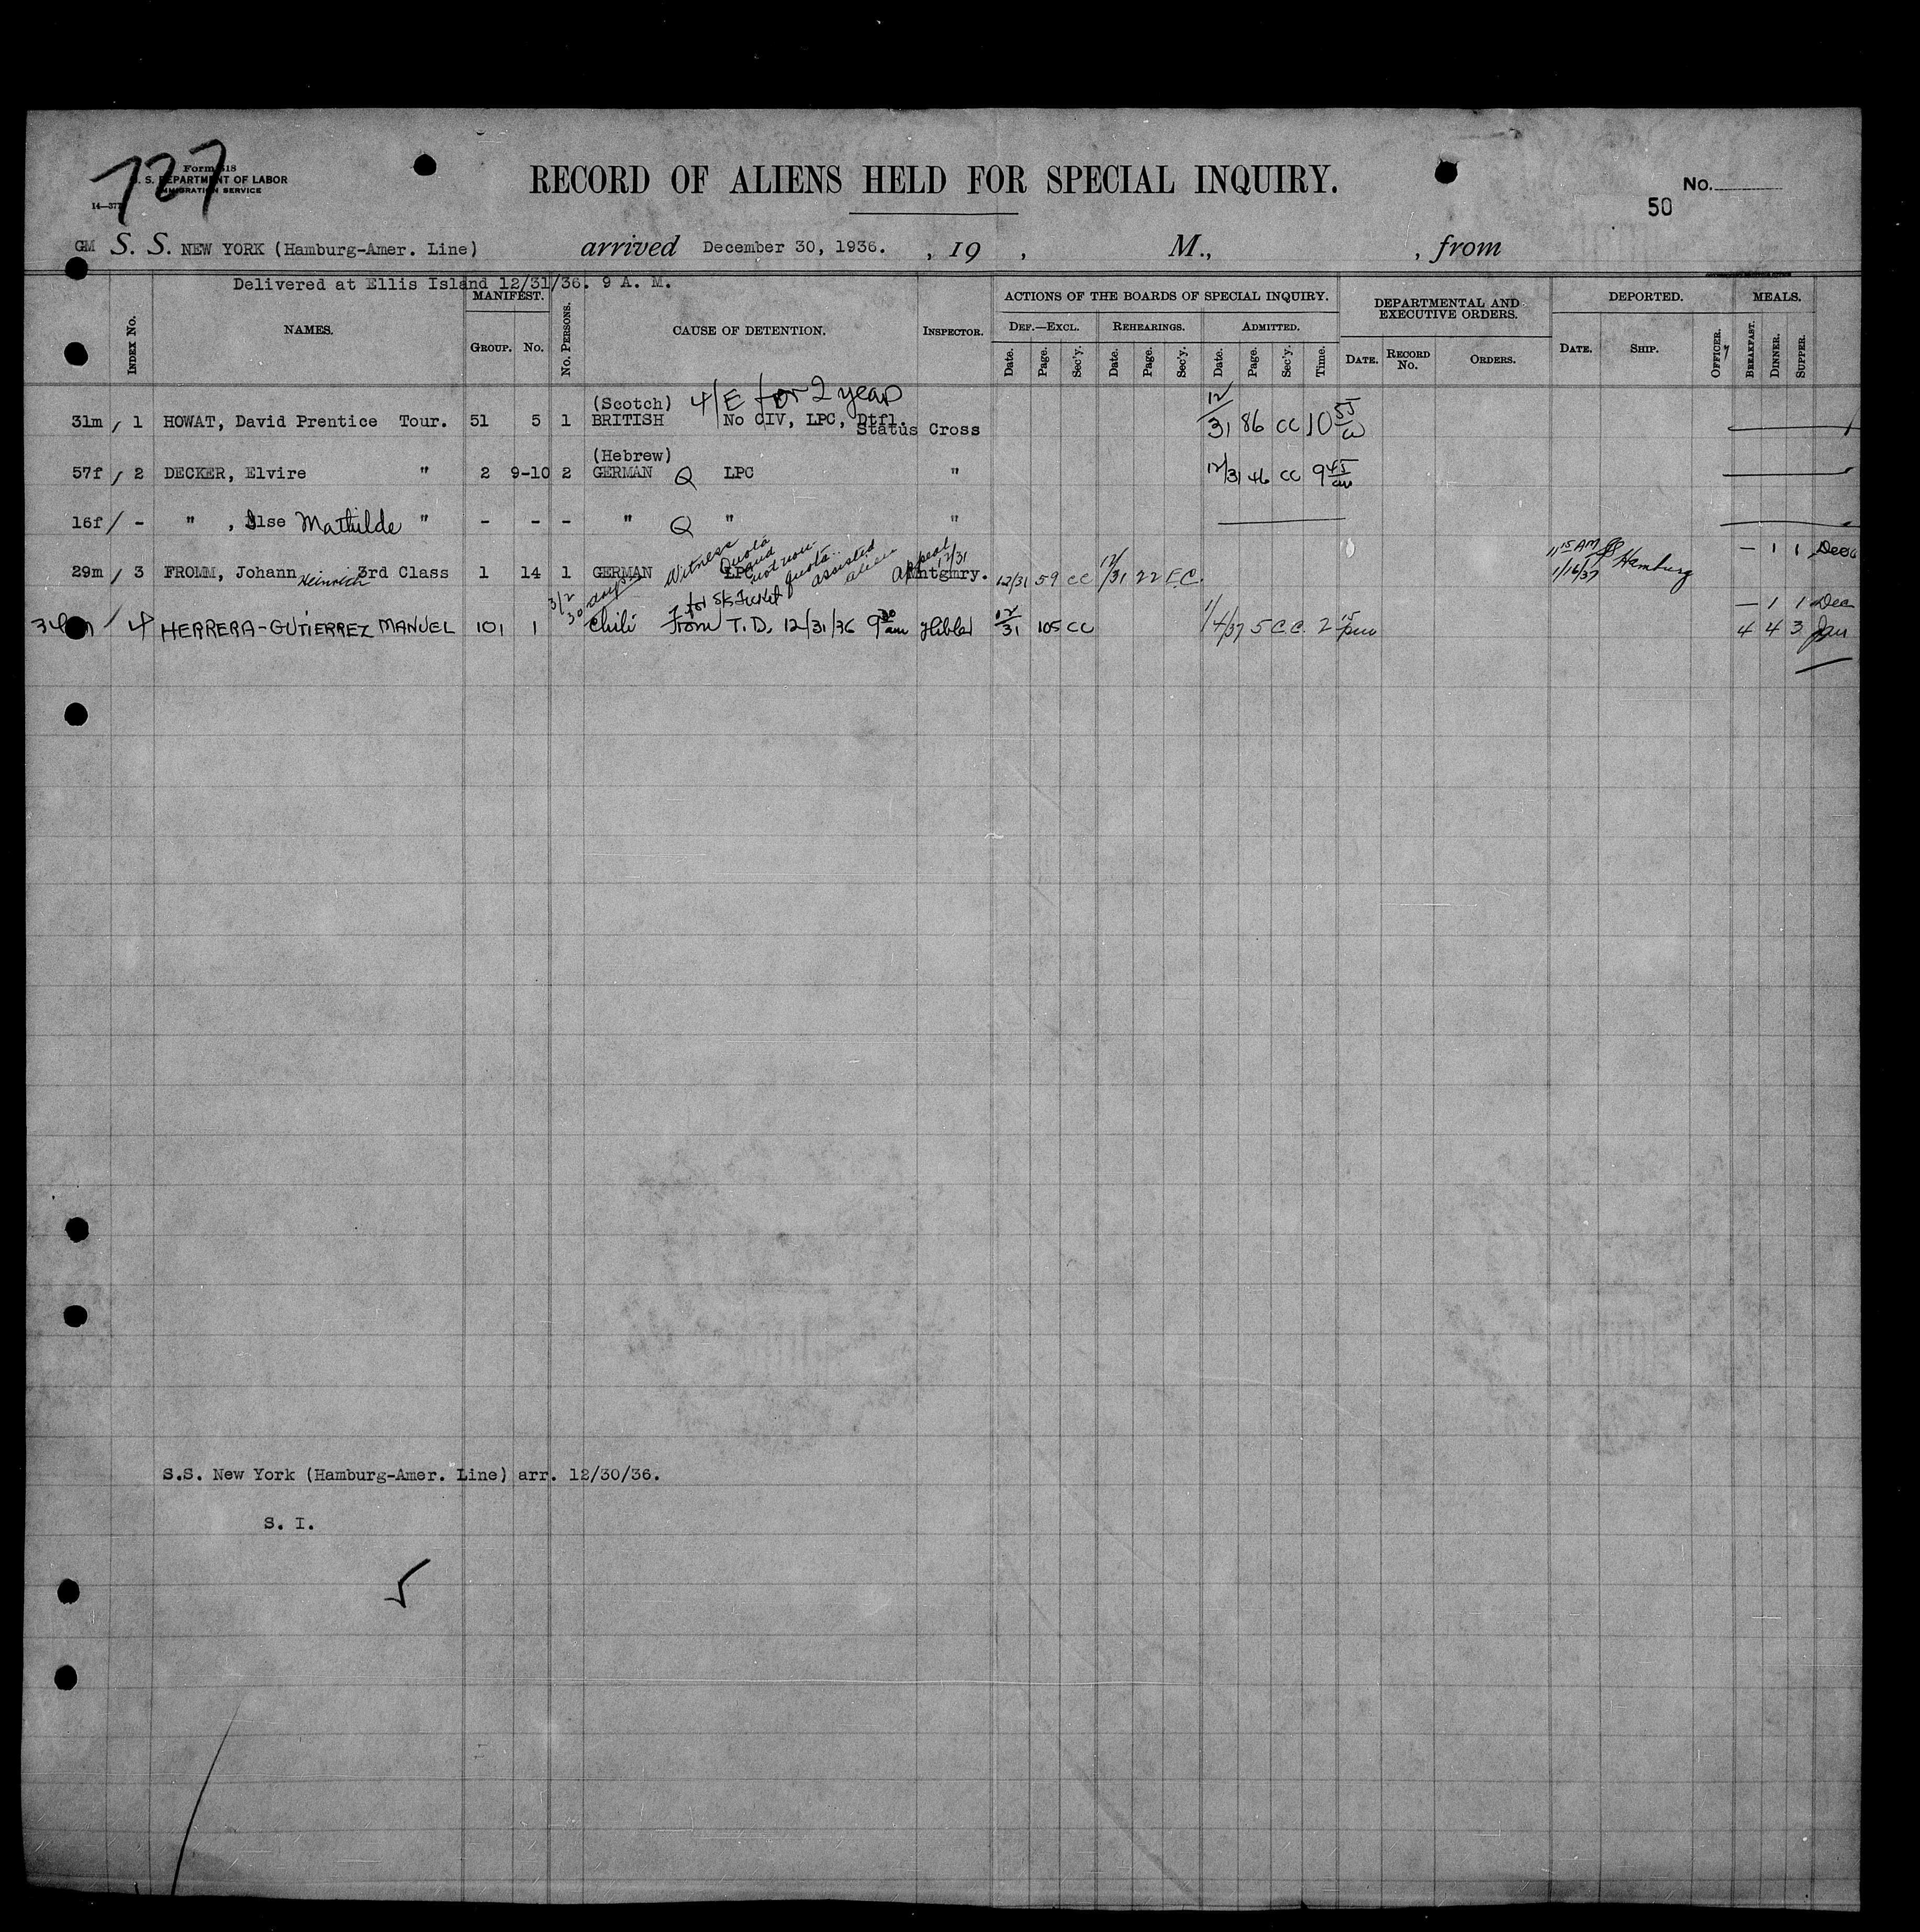 727
Form 518
U. S. DEPARTMENT OF LABOR
IMMIGRATION SERVICE
14—377
RECORD OF ALIENS HELD FOR SPECIAL INQUIRY.
No.
50
GM S. S. NEW YORK (Hamburg-Amer. Line) arrived December 30, 1936. , 19 , M., , from
Delivered at Ellis Island 12/31/36. 9 A. M.
INDEX No. NAMES. MANIFEST. GROUP. No. No. PERSONS. CAUSE OF DETENTION. INSPECTOR. ACTIONS OF THE BOARDS OF SPECIAL INQUIRY. DEPARTMENTAL AND EXECUTIVE ORDERS. DEPORTED. MEALS.
DEF.—EXCL. REHEARINGS. ADMITTED.
Date. Page. Sec'y. Date. Page. Sec'y. Date. Page. Sec'y. Time. DATE. RECORD No. ORDERS. DATE. SHIP. OFFICER. BREAKFAST. DINNER. SUPPER.
(Scotch) 4/E for 2 year
31m / 1 HOWAT, David Prentice Tour. 51 5 1 BRITISH No CIV, LPC, Dtfl. Status Cross 12/31 86 CC 10 55
(Hebrew)
57f / 2 DECKER, Elvire " 2 9-10 2 GERMAN Q LPC " 12/31 46 CC 9 45 am
16f / - " , Ilse Mathilde " - - - " Q " "
29m / 3 FROMM, Johann Heinrich 3rd Class 1 14 1 GERMAN LPC Witness Quota and not non-quota assisted alien Appeal 12/31 Mntgmry. 12/31 59 CC 12/31 22 E.C. 11 15 AM 1/16/37 Hamburg — 1 1 Dec
3/2 30 days for S/S Ticket — 1 1 Dec
4 HERRERA-GUTIERREZ MANUEL 101 1 Chili From T.D. 12/31/36 9 30 am 12/31 105 CC 1/4/37 5 C.C. 2 15 pm 4 4 3 Jan
S.S. New York (Hamburg-Amer. Line) arr. 12/30/36.
S. I.